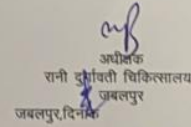 अधीक्षक
रानी दुर्गावती चिकित्सालय
जबलपुर
जबलपुर,दिनांक